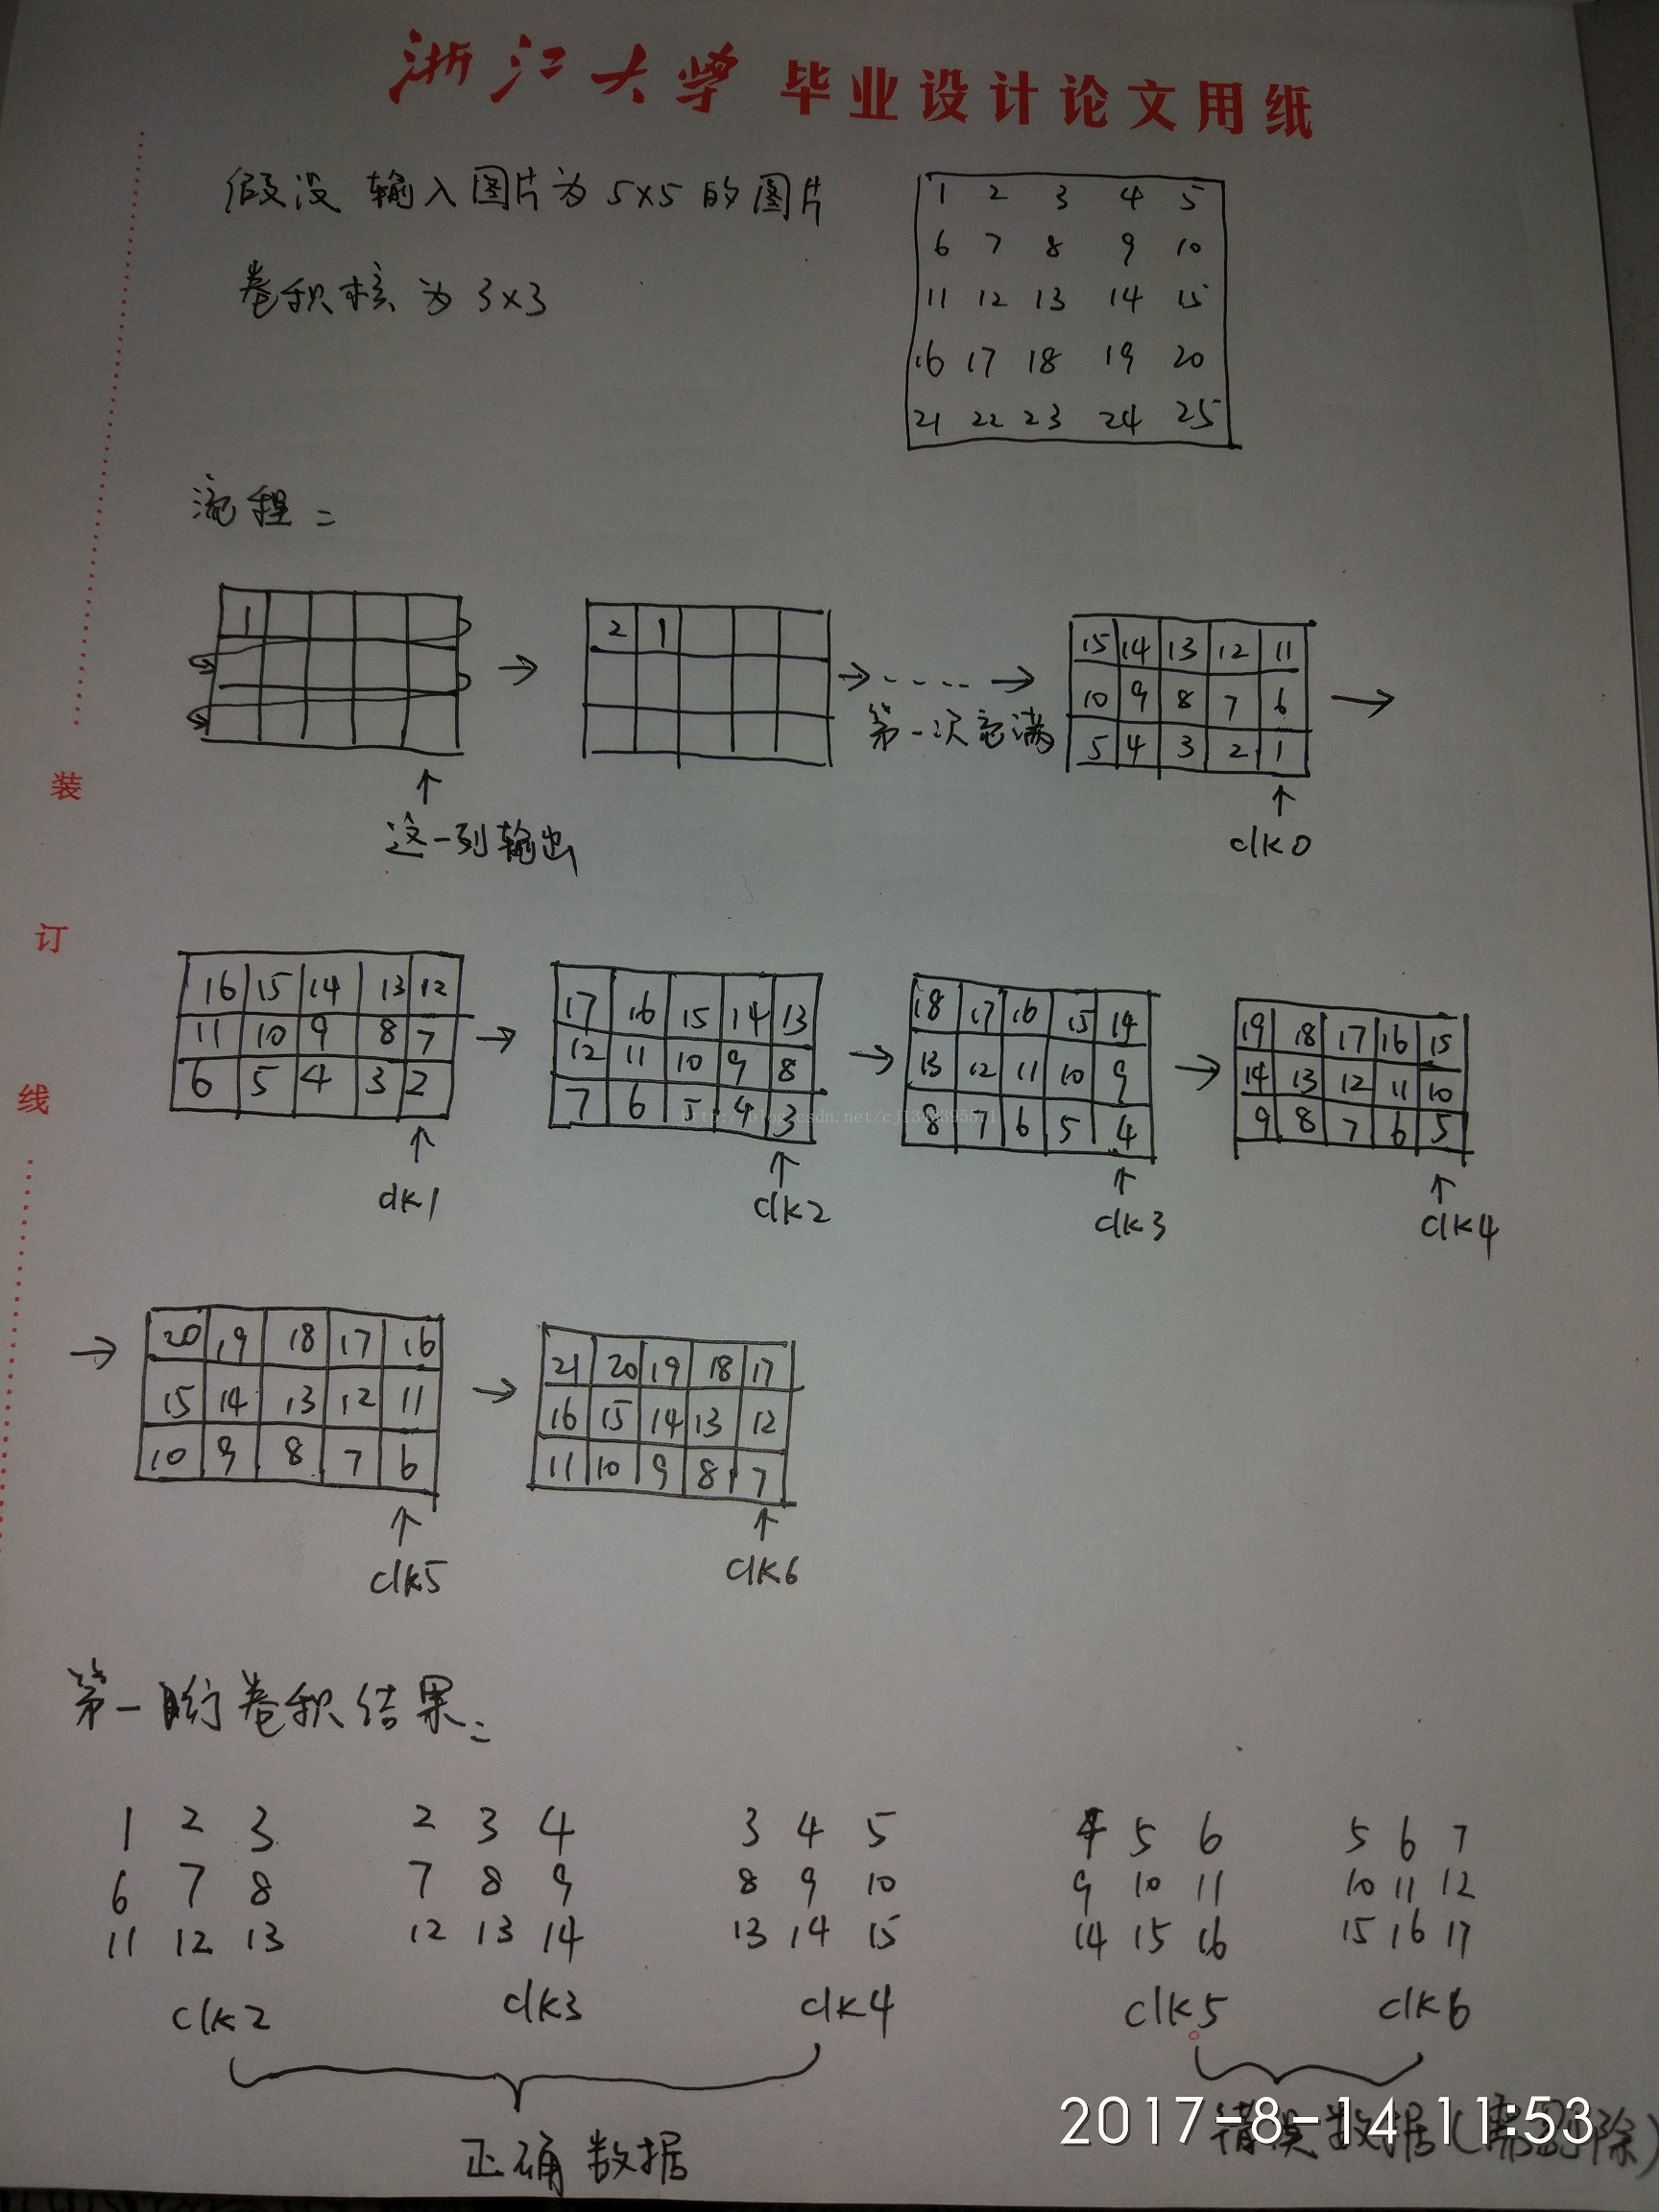 浙江大学 毕业设计论文用纸
假设 输入图片为 5×5 的图片
卷积核为 3×3
1 2 3 4 5
6 7 8 9 10
11 12 13 14 15
16 17 18 19 20
21 22 23 24 25
流程:
1
2 1
第一次充满
15 14 13 12 11
10 9 8 7 6
5 4 3 2 1
这一列输出
clk0
装
订
线
16 15 14 13 12
11 10 9 8 7
6 5 4 3 2
clk1
17 16 15 14 13
12 11 10 9 8
7 6 5 4 3
clk2
18 17 16 15 14
13 12 11 10 9
8 7 6 5 4
clk3
19 18 17 16 15
14 13 12 11 10
9 8 7 6 5
clk4
20 19 18 17 16
15 14 13 12 11
10 9 8 7 6
clk5
21 20 19 18 17
16 15 14 13 12
11 10 9 8 7
clk6
第一行卷积结果:
1 2 3 2 3 4 3 4 5 4 5 6 5 6 7
6 7 8 7 8 9 8 9 10 9 10 11 10 11 12
11 12 13 12 13 14 13 14 15 14 15 16 15 16 17
clk2 clk3 clk4 clk5 clk6
正确数据
错误数据(需剔除)
2017-8-14 11:53